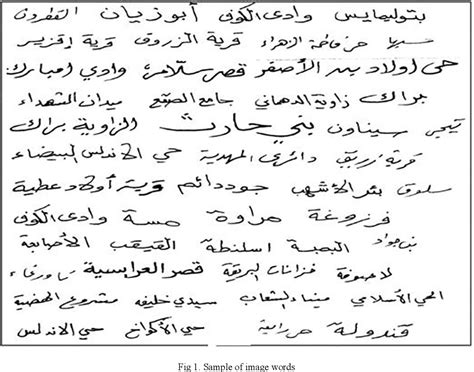 بتوليمايس وادى الكوف أبوزيان القطرون
مسيها حي فاطمة الزهراء قرية الزروق قرية إقزير
حى اولاد بن الأصفر قصر سلامة وادي امبارك
براك زاوية الدهماني جامع الصقع ميدان الشهداء
تيجي سيناون بني حارث الزاوية براك
قرية زريق دائرى المهدية حي الاندلس البيضاء
سلوق بئر الأشهب جوددائم قرية أولاد عطية
فرزوغة مراوة مسة وادى الكوف
بني جواد البمبة اسلنطة القيقب الأصابعة
خزانات البريقة قصر العراسية
الحي الاسلامي ميناء الشعاب سيدي خليفه مشروع الهضبة
قندولة حي الأكواخ حي الاندلس
Fig 1. Sample of image words